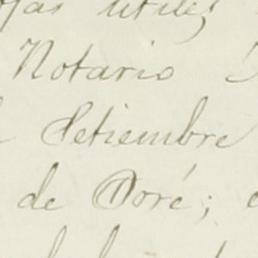 utiles
Notario
Setiembre
de Doré;